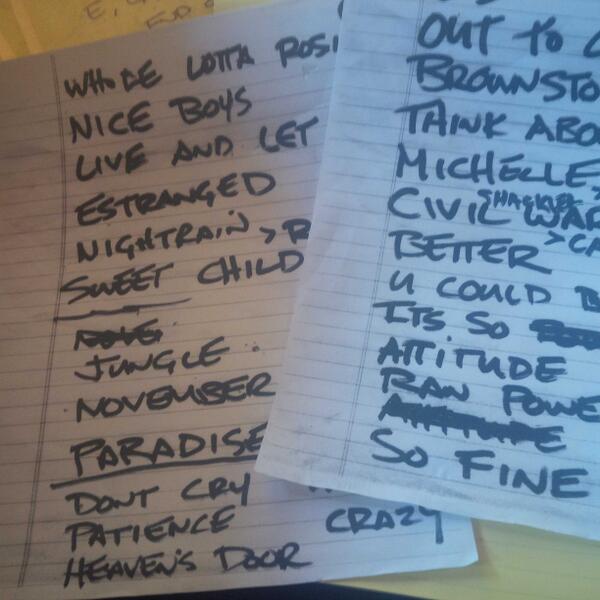 WHOLE LOTTA ROSI
NICE BOYS
LIVE AND LET
ESTRANGED
NIGHTRAIN > R
SWEET CHILD
JUNGLE
NOVEMBER
PARADISE
DONT CRY
PATIENCE CRAZY
HEAVEN'S DOOR
OUT TO
BROWNSTO
THINK ABO
MICHELLE
SHACKLER
CIVIL WAR
BETTER > CA
U COULD B
ITS SO
ATTITUDE
RAW POWE
ATTITUDE
SO FINE